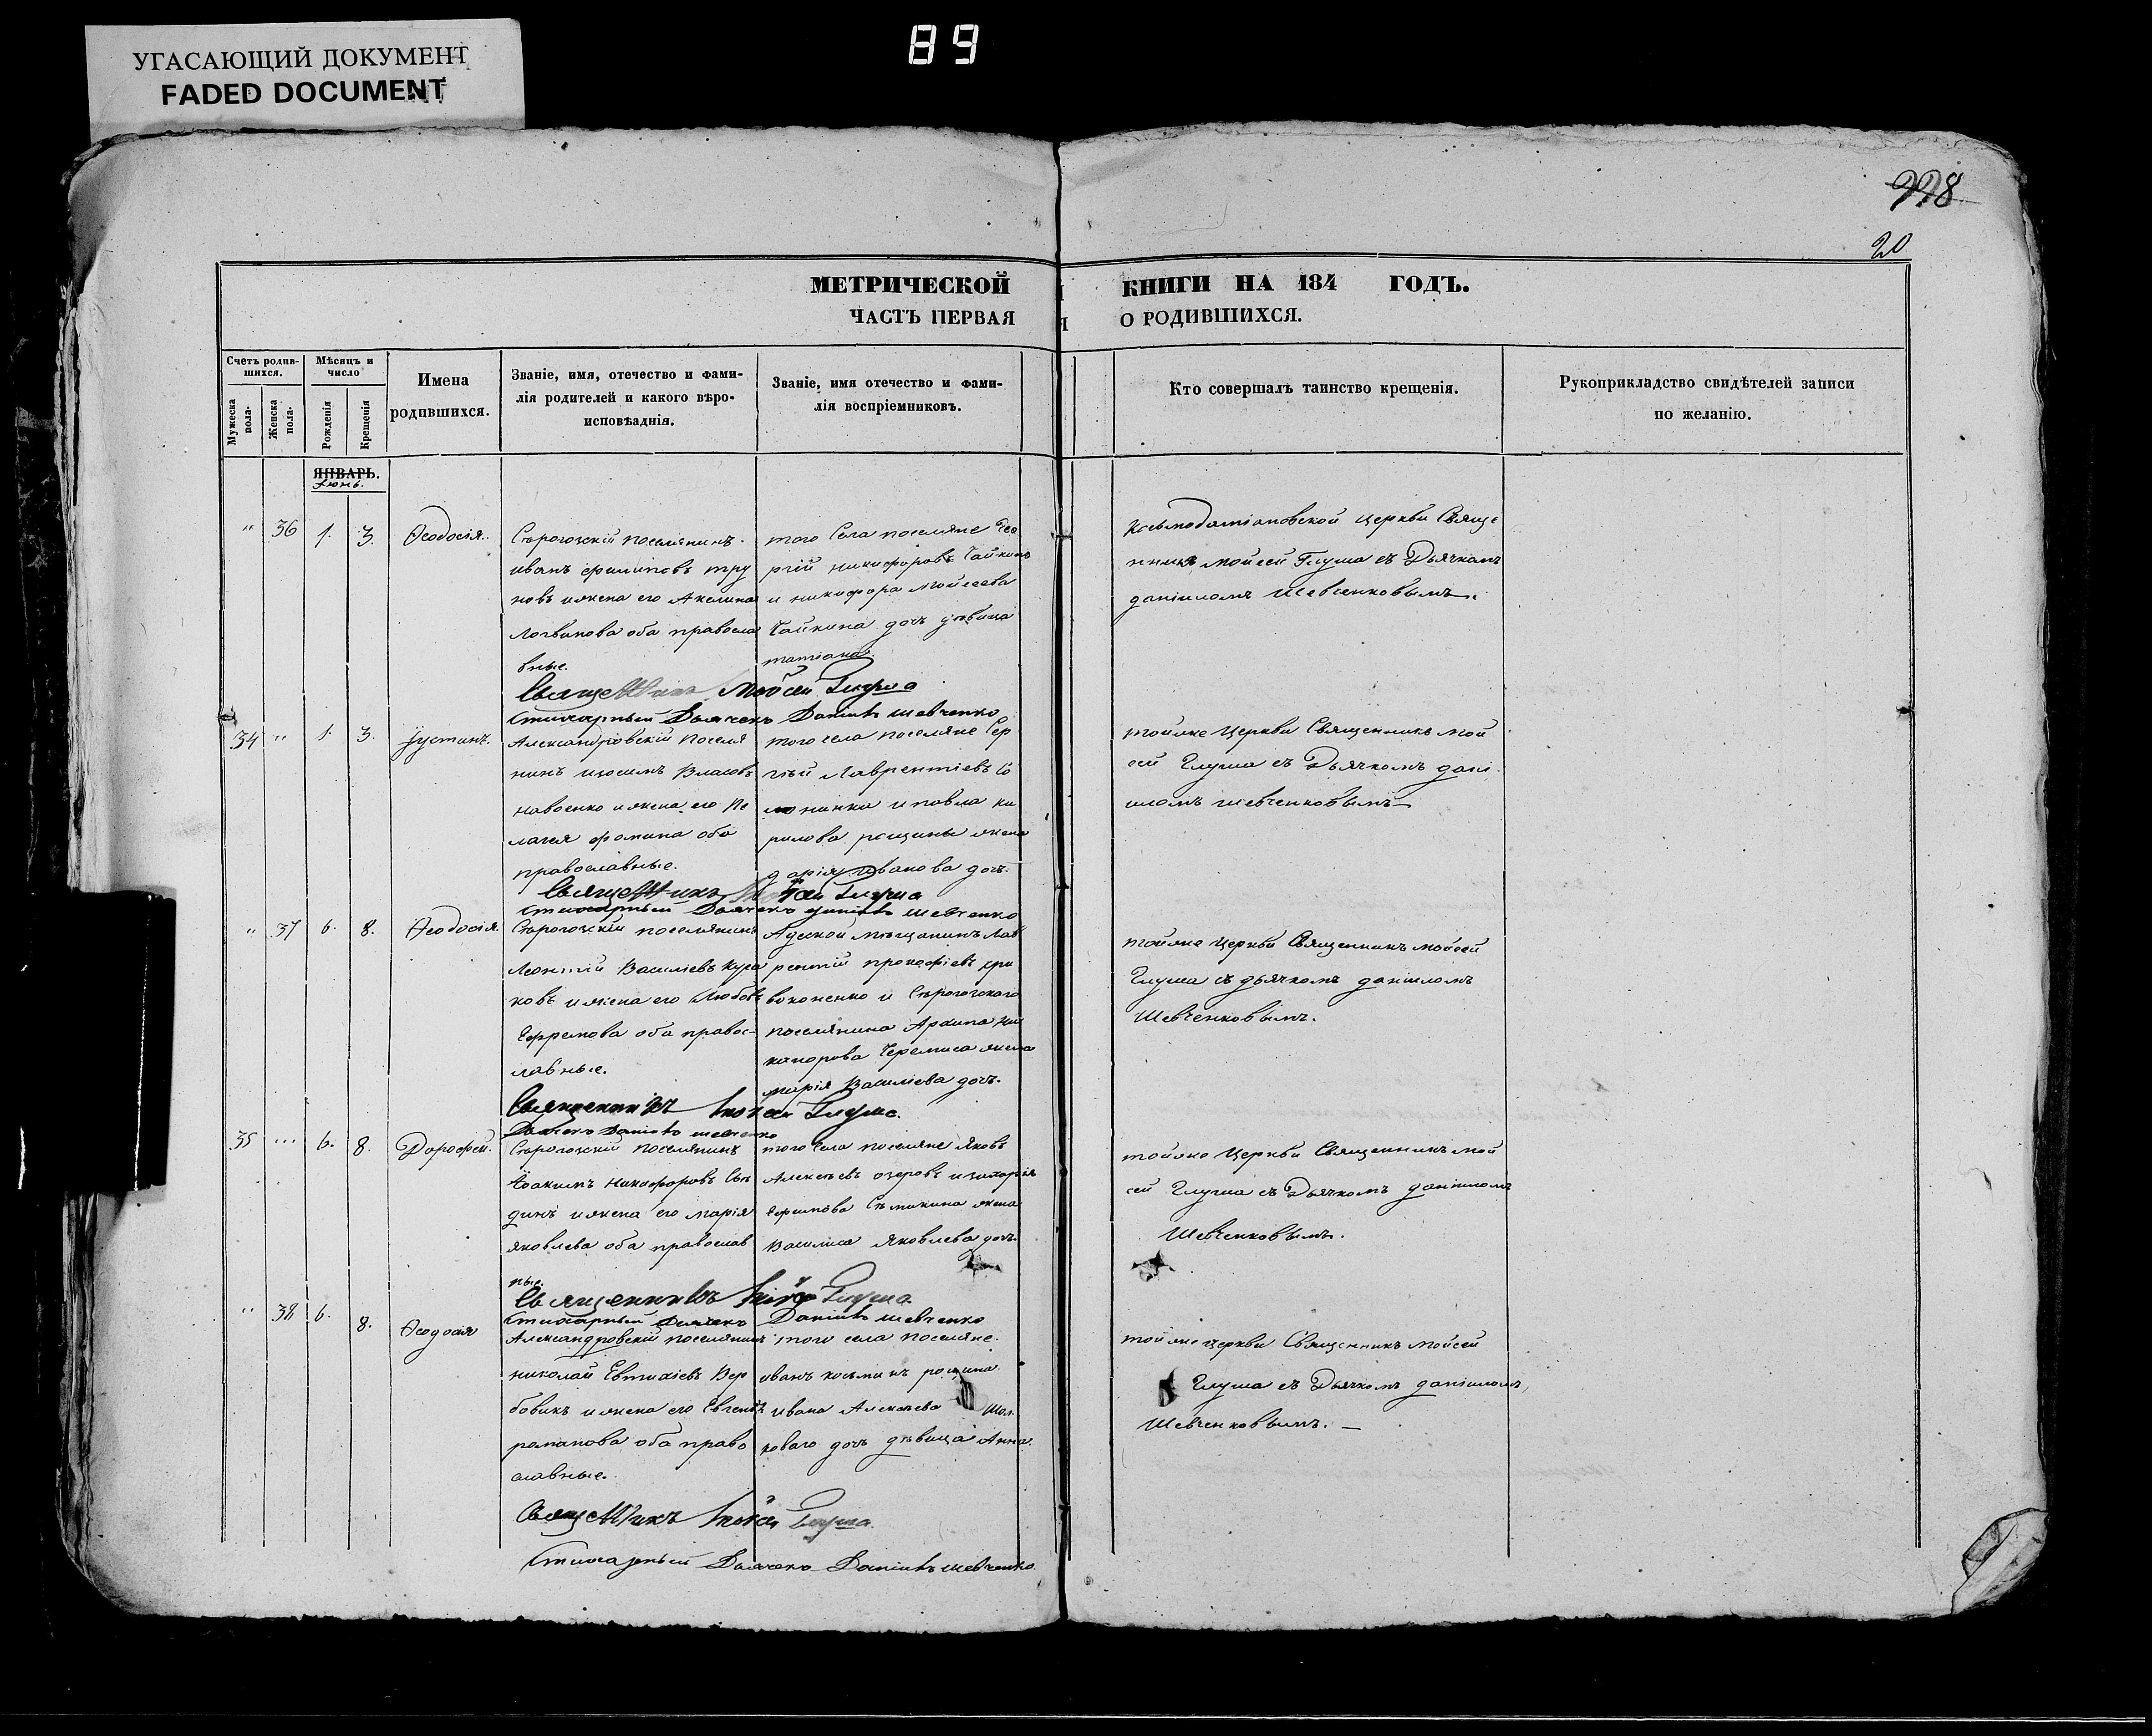 УГАСАЮЩИЙ ДОКУМЕНТ
FADED DOCUMENT
89
998
20
МЕТРИЧЕСКОЙ КНИГИ НА 184 ГОДЪ.
ЧАСТЬ ПЕРВАЯ О РОДИВШИХСЯ.
Счетъ родив-
шихся.
Мѣсяцъ и
число
Мужеска
пола.
Женска
пола.
Рожденія
Крещенія
Имена
родившихся.
Званіе, имя, отечество и фами-
лія родителей и какого вѣро-
исповѣаднія.
Званіе, имя отечество и фами-
лія воспріемниковъ.
Кто совершалъ таинство крещенія.
Рукоприкладство свидѣтелей записи
по желанію.
ЯНВАРЬ.
Іюнь.
" 36 1. 3. Ѳеодосія.
Сѣрогозскій поселянинъ
иванъ филиповъ тру
новъ и жена его Акелина
Логвинова оба правосла
вные.
того Села поселяне Гео
ргій никифоровъ Чайкинъ
и никифора Мойсеева
Чайкина дочъ дѣвица
татіана.
Козьмодаміановской церкви Свяще
нникъ мойсей Глуша съ Дьячкомъ
даніиломъ Шевченковымъ.
Священникъ Мойсей Глуша
Стихарный Дьячекъ Даніилъ шевченко
34 " 1. 3. Іустинъ.
Александровскій поселя
нинъ иосипъ Власовъ
навоенко и жена его Пе
лагея фомина оба
православные.
того села поселяне Сер
гѣй Лаврентіевъ
и павла ки
рилова рощины жена
дарія иванова дочъ.
тойже Церкви Священникъ мой
сей Глуша съ Дьячкомъ дані
иломъ шевченковымъ
Священникъ Мойсей Глуша
Стихарный Дьячекъ даніилъ шевченко
" 37 6. 8. Ѳеодосія.
Сѣрогозскій поселянинъ
Леонтій Василіевъ
ковъ и жена его Любовъ
Ефремова оба правос-
лавные.
Адеской мѣщанинъ Лав
рентій прокофіевъ кри
воконенко и Сѣрогозскаго
поселянина Архипа ни
канорова Черемиса жена
марія Василіева дочъ.
тойже церкви Священникъ мойсей
Глуша съ дьячкомъ даніиломъ
Шевченковымъ.
Священникъ Мойсей Глуша.
Дьячекъ Даніилъ шевченко
35 " 6. 8. Дорофей.
Сѣрогозскій поселянинъ
Іоакимъ никифоровъ
динъ и жена его марія
яковлева оба православ
ные.
того села поселяне яковъ
Алексѣевъ озеровъ и
ефимова жена
Василиса Яковлева дочъ.
тойже Церкви Священникъ мой
сей Глуша съ Дьячкомъ даніиломъ
Шевченковымъ.
Священникъ Мойсей Глуша
Стихарный Дьячекъ Даніилъ шевченко
" 38 6. 8. Ѳеодосія
Александровскій поселянинъ
николай Евтихіевъ Вер
бовикъ и жена его Евгенія
романова оба право
славные.
того села поселяне.
иванъ козьминъ рощина
ивана Алексѣева Шел
коваго дочъ дѣвица Анна.
тойже церкви Священникъ мойсей
Глуша съ Дьячкомъ даніиломъ
Шевченковымъ.
Священникъ Мойсей Глуша.
Стихарный Дьячекъ Даніилъ шевченко.